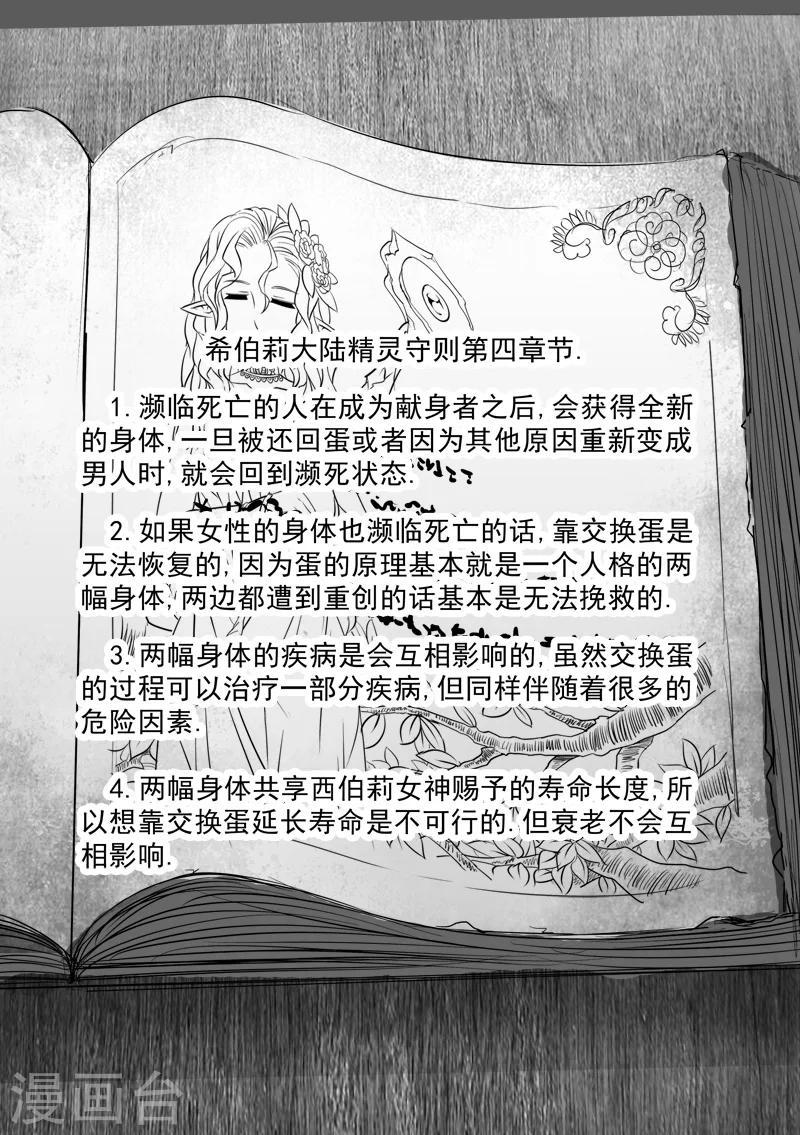 希伯莉大陆精灵守则第四章节.
1. 濒临死亡的人在成为献身者之后,会获得全新
的身体,一旦被还回蛋或者因为其他原因重新变成
男人时,就会回到濒死状态.
2. 如果女性的身体也濒临死亡的话,靠交换蛋是
无法恢复的,因为蛋的原理基本就是一个人格的两
幅身体,两边都遭到重创的话基本是无法挽救的.
3. 两幅身体的疾病是会互相影响的,虽然交换蛋
的过程可以治疗一部分疾病,但同样伴随着很多的
危险因素.
4. 两幅身体共享西伯莉女神赐予的寿命长度,所
以想靠交换蛋延长寿命是不可行的.但衰老不会互
相影响.
漫画台